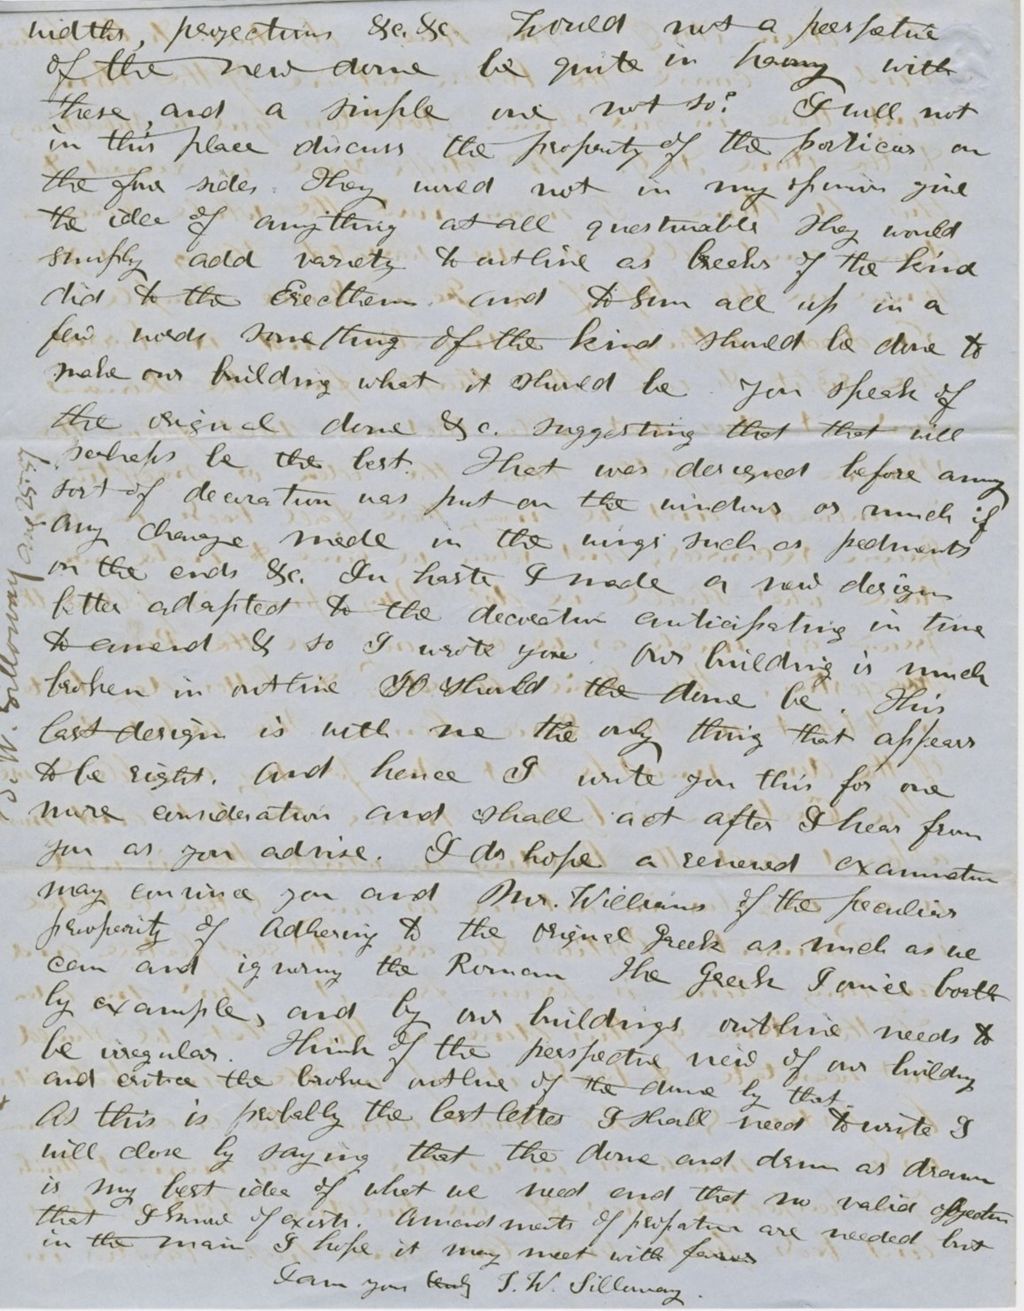 widths, projections &c. &c. Would not a perspective
of the new dome be quite in harmony with
these, and a simple one not so? I will not
in this place discuss the propriety of the porticos on
the four sides. They would not in my opinion give
the idea of anything at all questionable They would
simply add variety to outline as breaks of the kind
did to the Erectheum. And to sum all up in a
few words something of the kind should be done to
make our building what it should be. You speak of
the original dome &c. suggesting that that will
perhaps be the best. That was designed before any
sort of decoration was put on the windows or much if
any change made in the wings such as pediments
on the ends &c. In haste I made a new design
better adapted to the decoration anticipating in time
to amend & so I wrote you. Our building is much
broken in outline So should the dome be. This
last design is with me the only thing that appears
to be right. And hence I write you this for one
more consideration and shall act after I hear from
you as you advise. I do hope a renewed examination
may convince you and Mr. Williams of the peculiar
propriety of adhering to the original Greek as much as we
can and ignoring the Roman The Greek Ionic both
by example, and by our buildings outline needs to
be irregular. Think of the perspective view of our building
and critice the broken outline of the dome by that.
As this is probably the last letter I shall need to write I
will close by saying that the dome and drum as drawn
is my best idea of what we need and that no valid objection
that I know of exists. Amendments of proportion are needed but
in the main I hope it may meet with favor
I am you truly T. W. Silloway.
T. W. Silloway